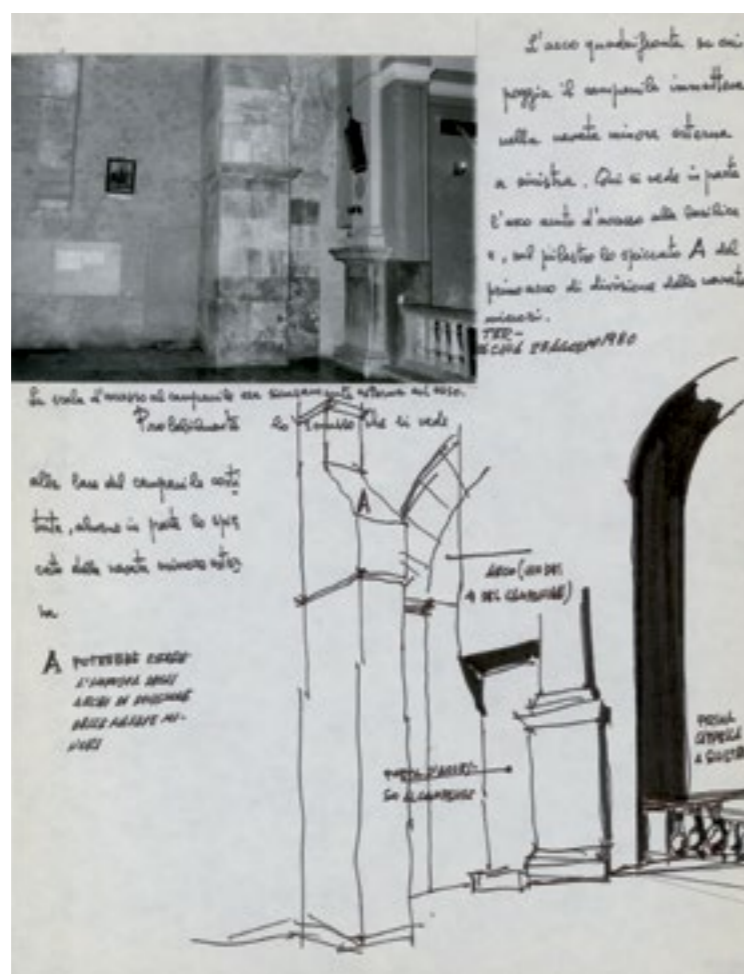 L'arco quadrifronte su cui
poggia il campanile immetteva
nella navata minore esterna
a sinistra. Qui si vede in parte
l'arco d'accesso alla basilica
e, sul pilastro lo spiccato A del
primo arco di divisione delle navate
minori.
La scala d'accesso al campanile era esterna ad esso.
Probabilmente lo che si vede
alla base del campanile costi
tuiva, almeno in parte lo spic
cato della navata minore ester
na
A
ARCO (UNO DEI
4 DEL CAMPANILE)
A POTREBBE ESSERE
L'IMPOSTA DEGLI
ARCHI DI DIVISIONE
DELLE NAVATE MI-
NORI
PORTA D'ACCES-
SO AL CAMPANILE
PRIMA
CAPPELLA
A SINISTRA